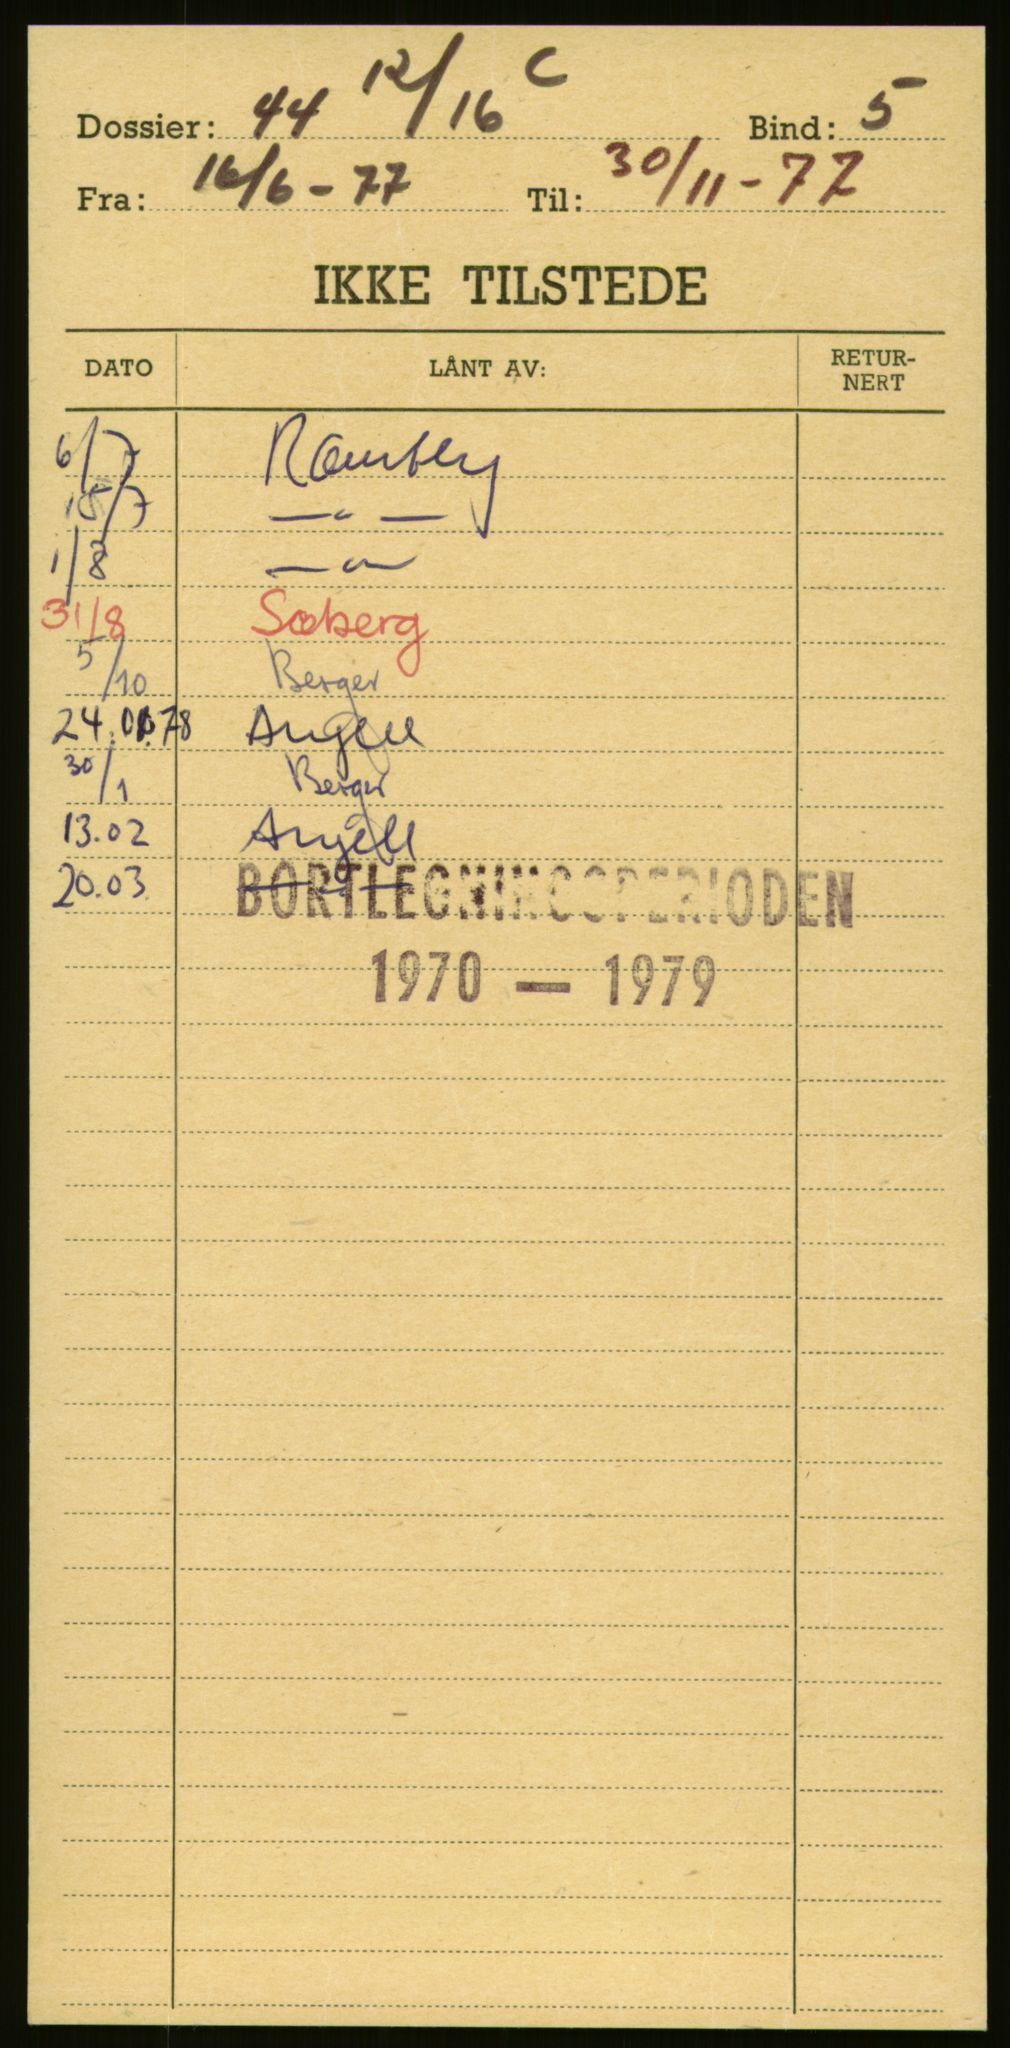 Dossier: 44 12/16 C Bind: 5
Fra: 16/6-77 Til: 30/11-77
IKKE TILSTEDE
DATO LÅNT AV: RETUR-NERT
6/7 Ramberg
15/7 — " —
1/8 — " —
31/8 Søberg
5/10 Berger
24.01.78 Angell
30/1 Berger
13.02 Angell
20.03 — " —
BORTLEGNINGSPERIODEN
1970 — 1979